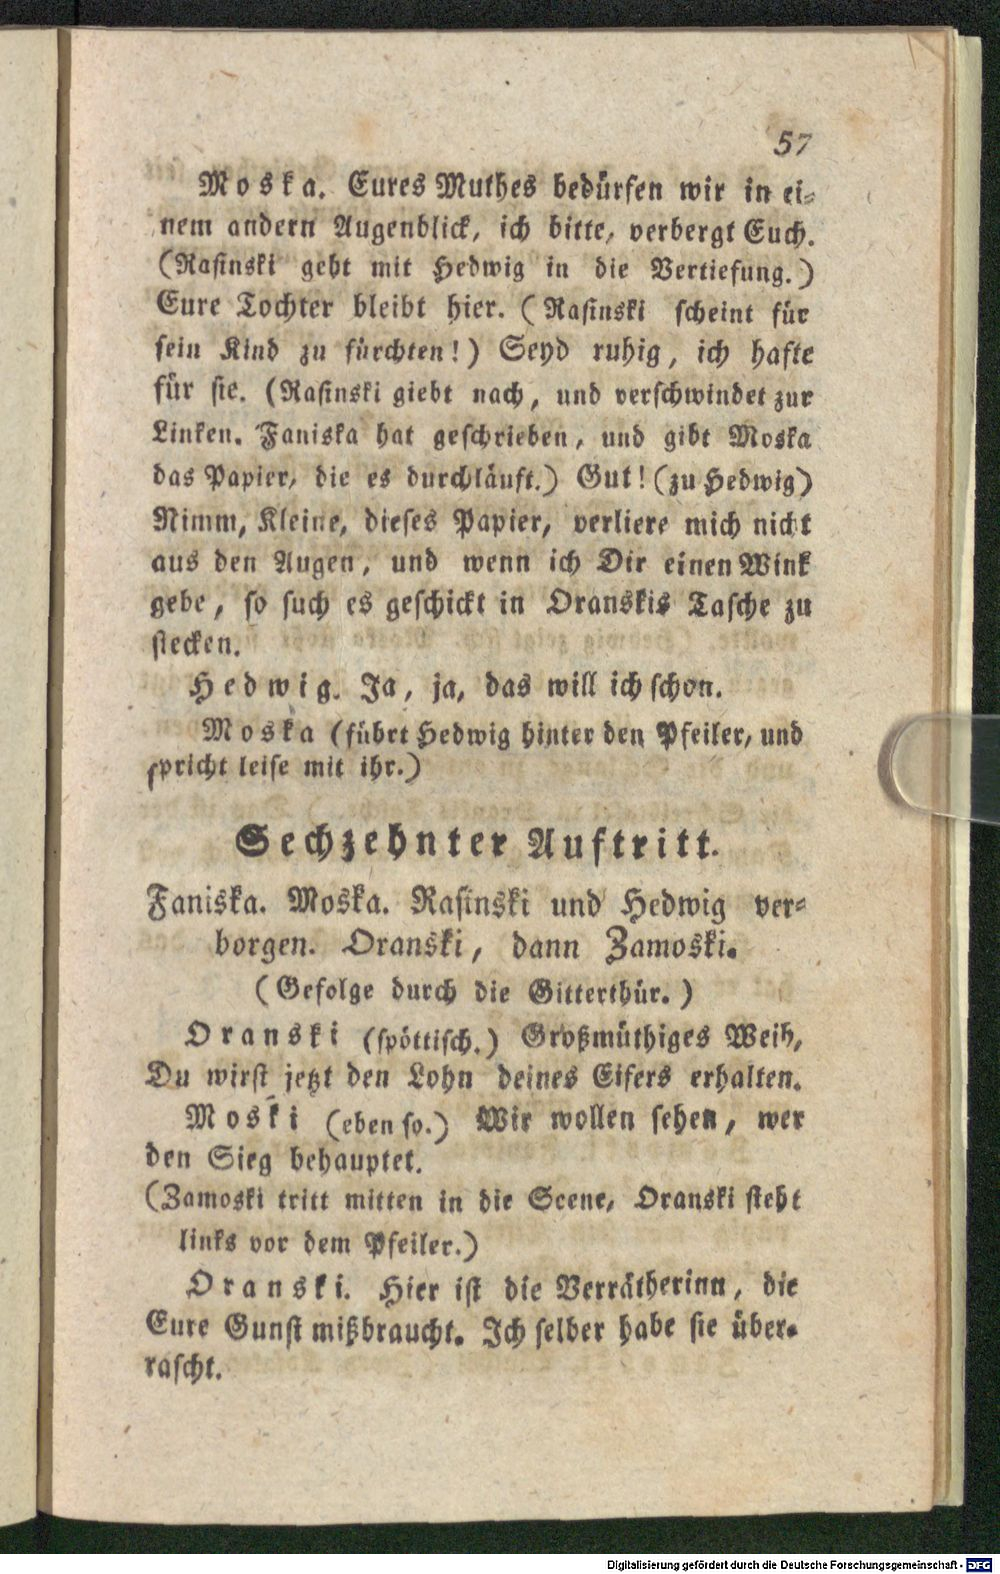 57
Moska. Eures Muthes bedürfen wir in ei-
nem andern Augenblick, ich bitte, verbergt Euch.
(Rasinski geht mit Hedwig in die Vertiefung.)
Eure Tochter bleibt hier. (Rasinski scheint für
sein Kind zu fürchten!) Seyd ruhig, ich hafte
für sie. (Rasinski giebt nach, und verschwindet zur
Linken. Faniska hat geschrieben, und gibt Moska
das Papier, die es durchläuft.) Gut! (zu Hedwig)
Nimm, Kleine, dieses Papier, verliere mich nicht
aus den Augen, und wenn ich Dir einen Wink
gebe, so such es geschickt in Oranskis Tasche zu
stecken.
Hedwig. Ja, ja, das will ich schon.
Moska (führt Hedwig hinter den Pfeiler, und
spricht leise mit ihr.)
Sechzehnter Auftritt.
Faniska. Moska. Rasinski und Hedwig ver-
borgen. Oranski, dann Zamoski.
(Gefolge durch die Gitterthür.)
Oranski (spöttisch.) Großmüthiges Weib,
Du wirst jetzt den Lohn deines Eifers erhalten.
Moski (eben so.) Wir wollen sehen, wer
den Sieg behauptet.
(Zamoski tritt mitten in die Scene, Oranski steht
links vor dem Pfeiler.)
Oranski. Hier ist die Verrätherinn, die
Eure Gunst mißbraucht. Ich selber habe sie über-
rascht.
Digitalisierung gefördert durch die Deutsche Forschungsgemeinschaft - DFG